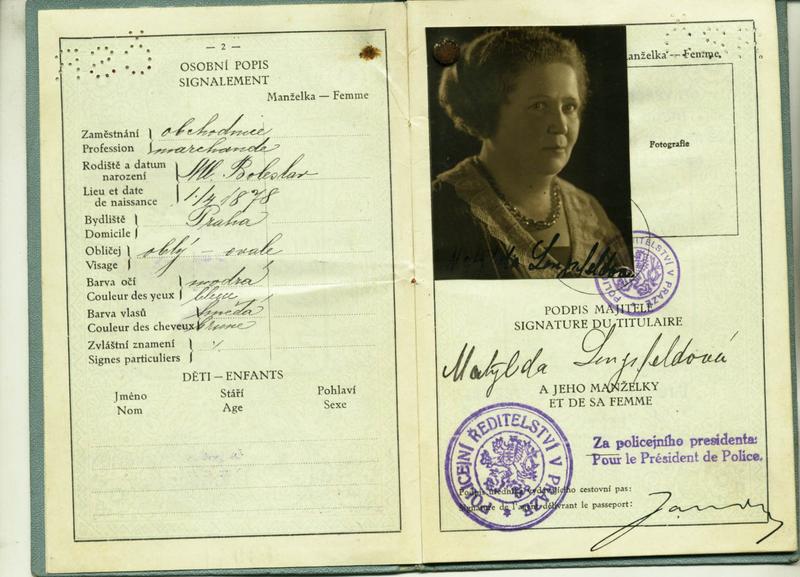 — 2 —
OSOBNÍ POPIS
SIGNALEMENT
Manželka — Femme
Zaměstnání
Profession
obchodnice
marchande
Rodiště a datum
narození
Ml. Boleslav
Lieu et date
de naissance
1878
Bydliště
Domicile
Praha
Obličej
Visage
oblý — ovale
Barva očí
Couleur des yeux
modrá
bleu
Barva vlasů
Couleur des cheveux
hnědá
brune
Zvláštní znamení
Signes particuliers
DĚTI — ENFANTS
Jméno Stáří Pohlaví
Nom Age Sexe
Manželka — Femme.
Fotografie
POLICEJNÍ ŘEDITELSTVÍ V PRAZE
PODPIS MAJITELE
SIGNATURE DU TITULAIRE
Matylda Lengsfeldová
A JEHO MANŽELKY
ET DE SA FEMME
POLICEJNÍ ŘEDITELSTVÍ V PRAZE
Za policejního presidenta:
Pour le Président de Police.
Podpis úředníka vydávajícího cestovní pas:
Signature de l'agent délivrant le passeport: